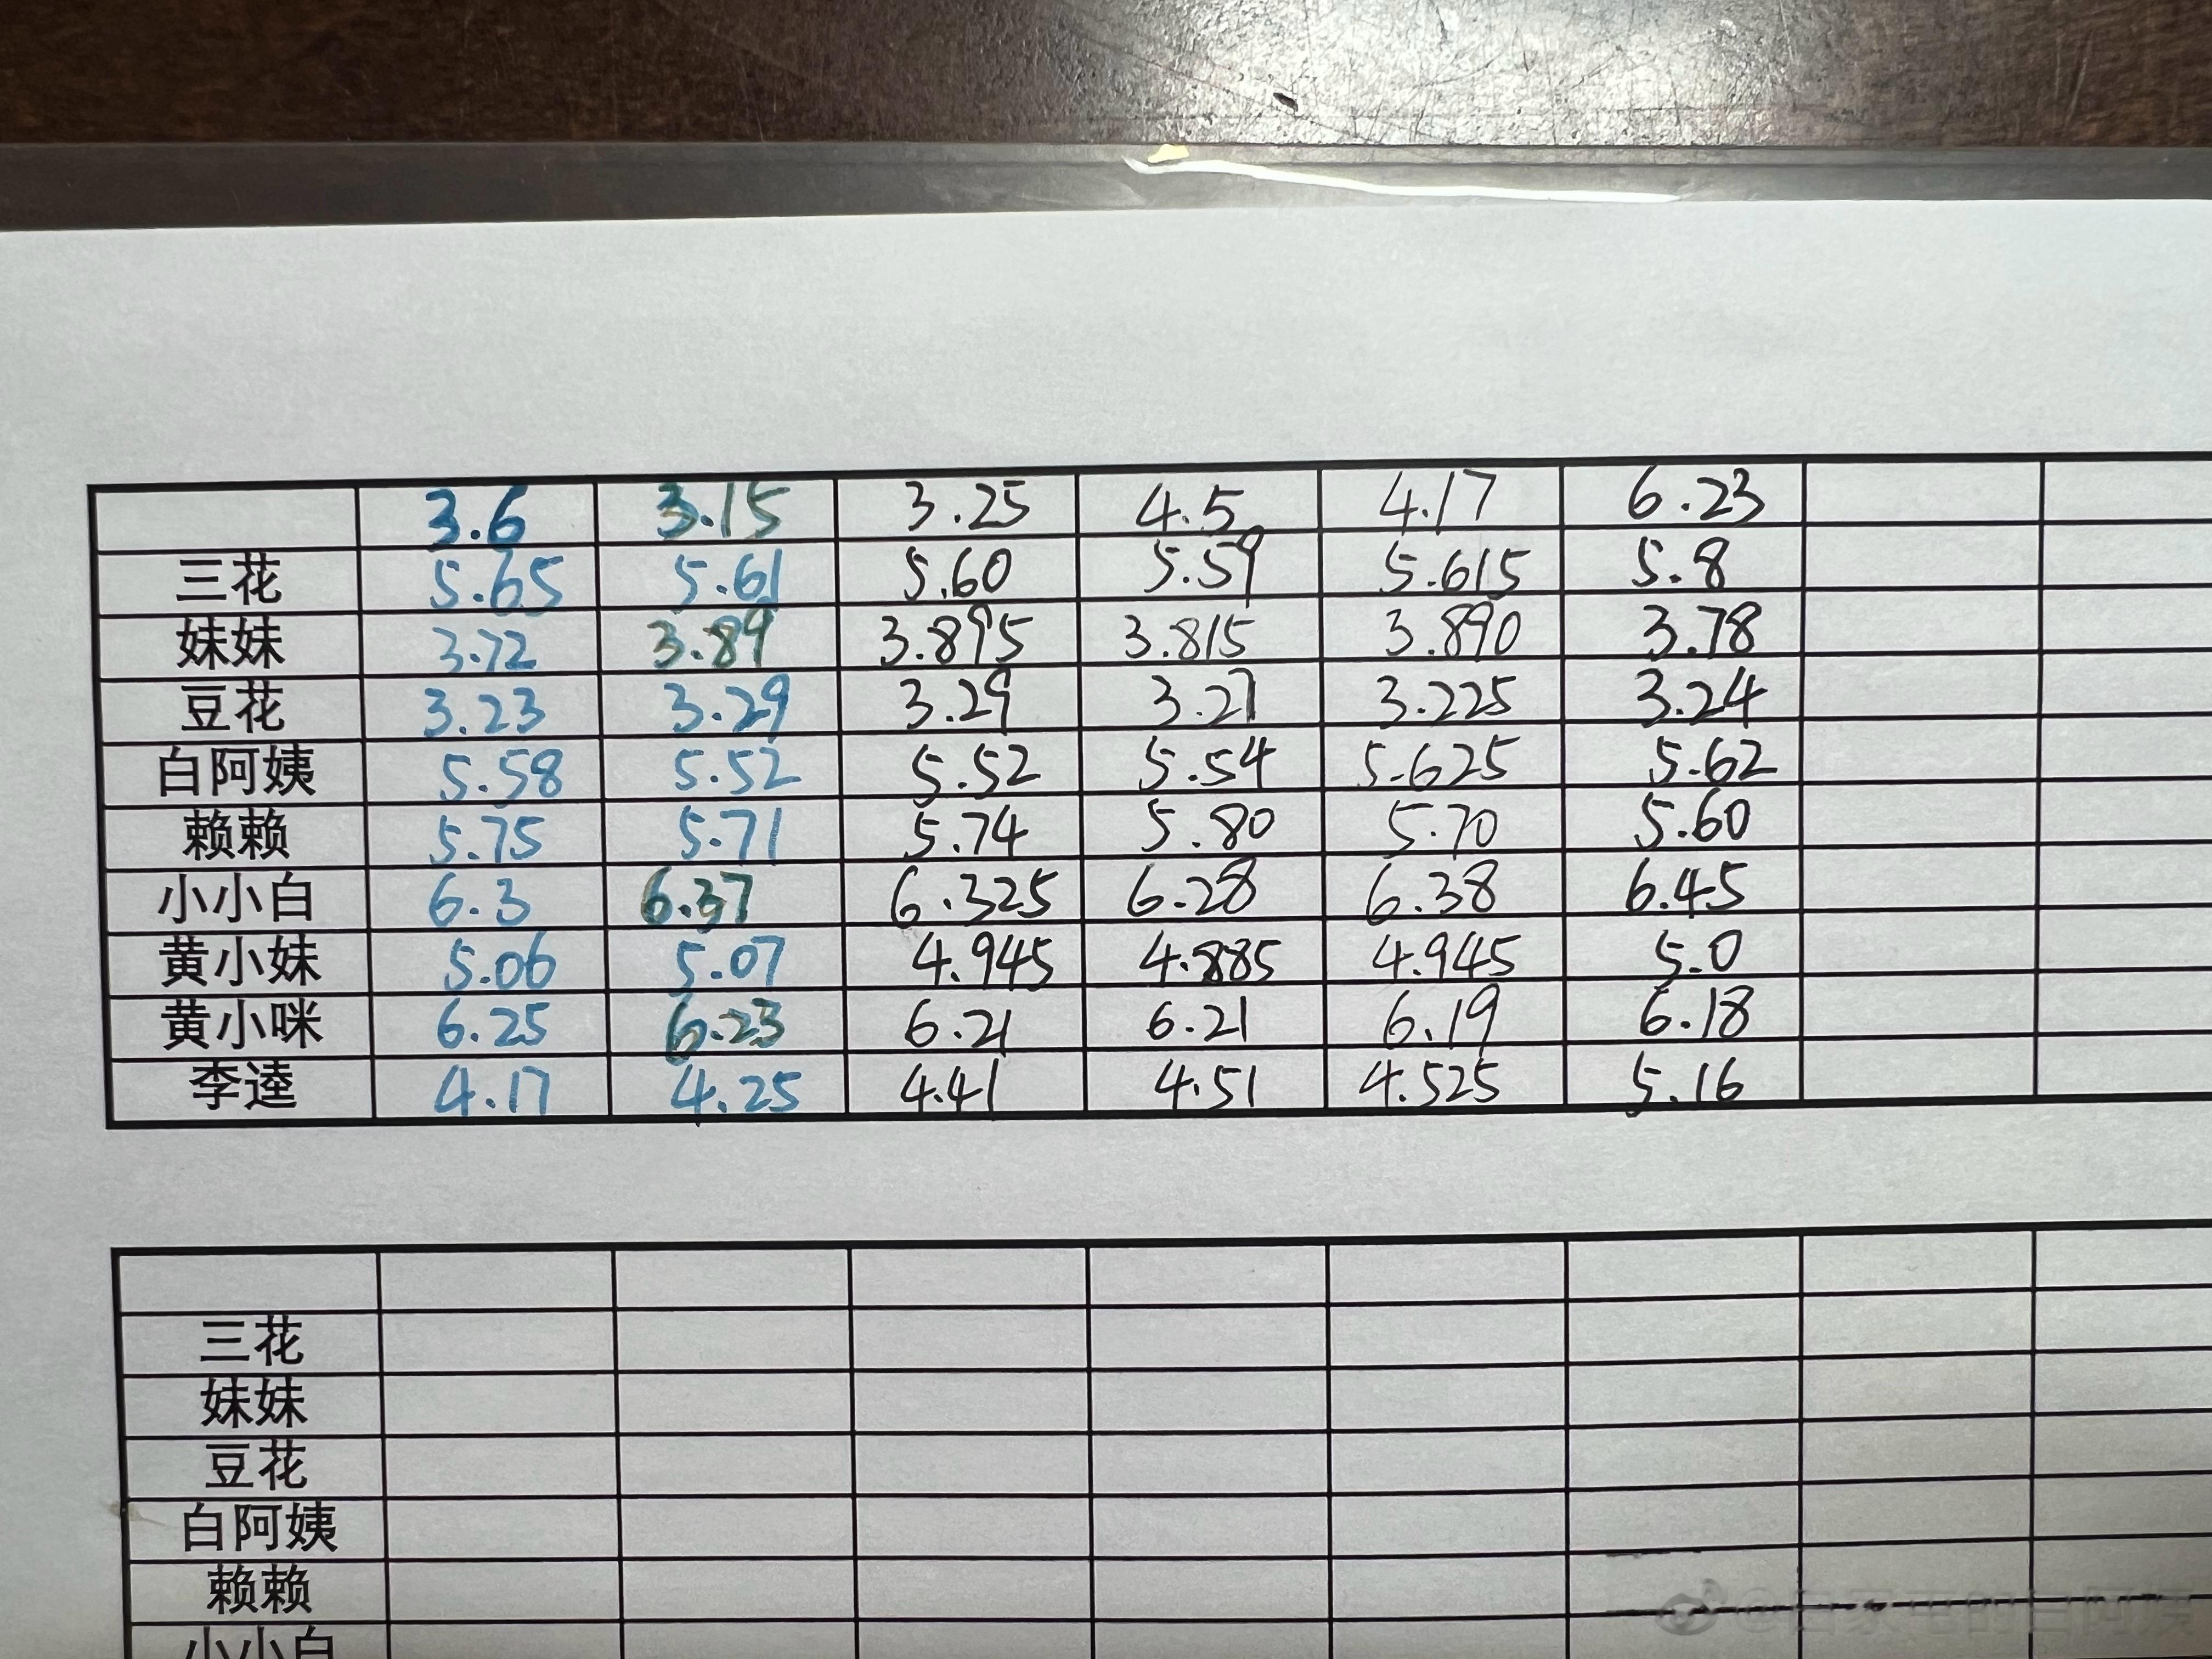 3.6 3.15 3.25 4.5 4.17 6.23
三花 5.65 5.61 5.60 5.59 5.615 5.8
妹妹 3.72 3.89 3.895 3.815 3.890 3.78
豆花 3.23 3.29 3.29 3.27 3.225 3.24
白阿姨 5.58 5.52 5.52 5.54 5.625 5.62
赖赖 5.75 5.71 5.74 5.80 5.70 5.60
小小白 6.3 6.37 6.325 6.28 6.38 6.45
黄小妹 5.06 5.07 4.945 4.885 4.945 5.0
黄小咪 6.25 6.23 6.21 6.21 6.19 6.18
李逵 4.17 4.25 4.41 4.51 4.525 5.16
三花
妹妹
豆花
白阿姨
赖赖
小小白